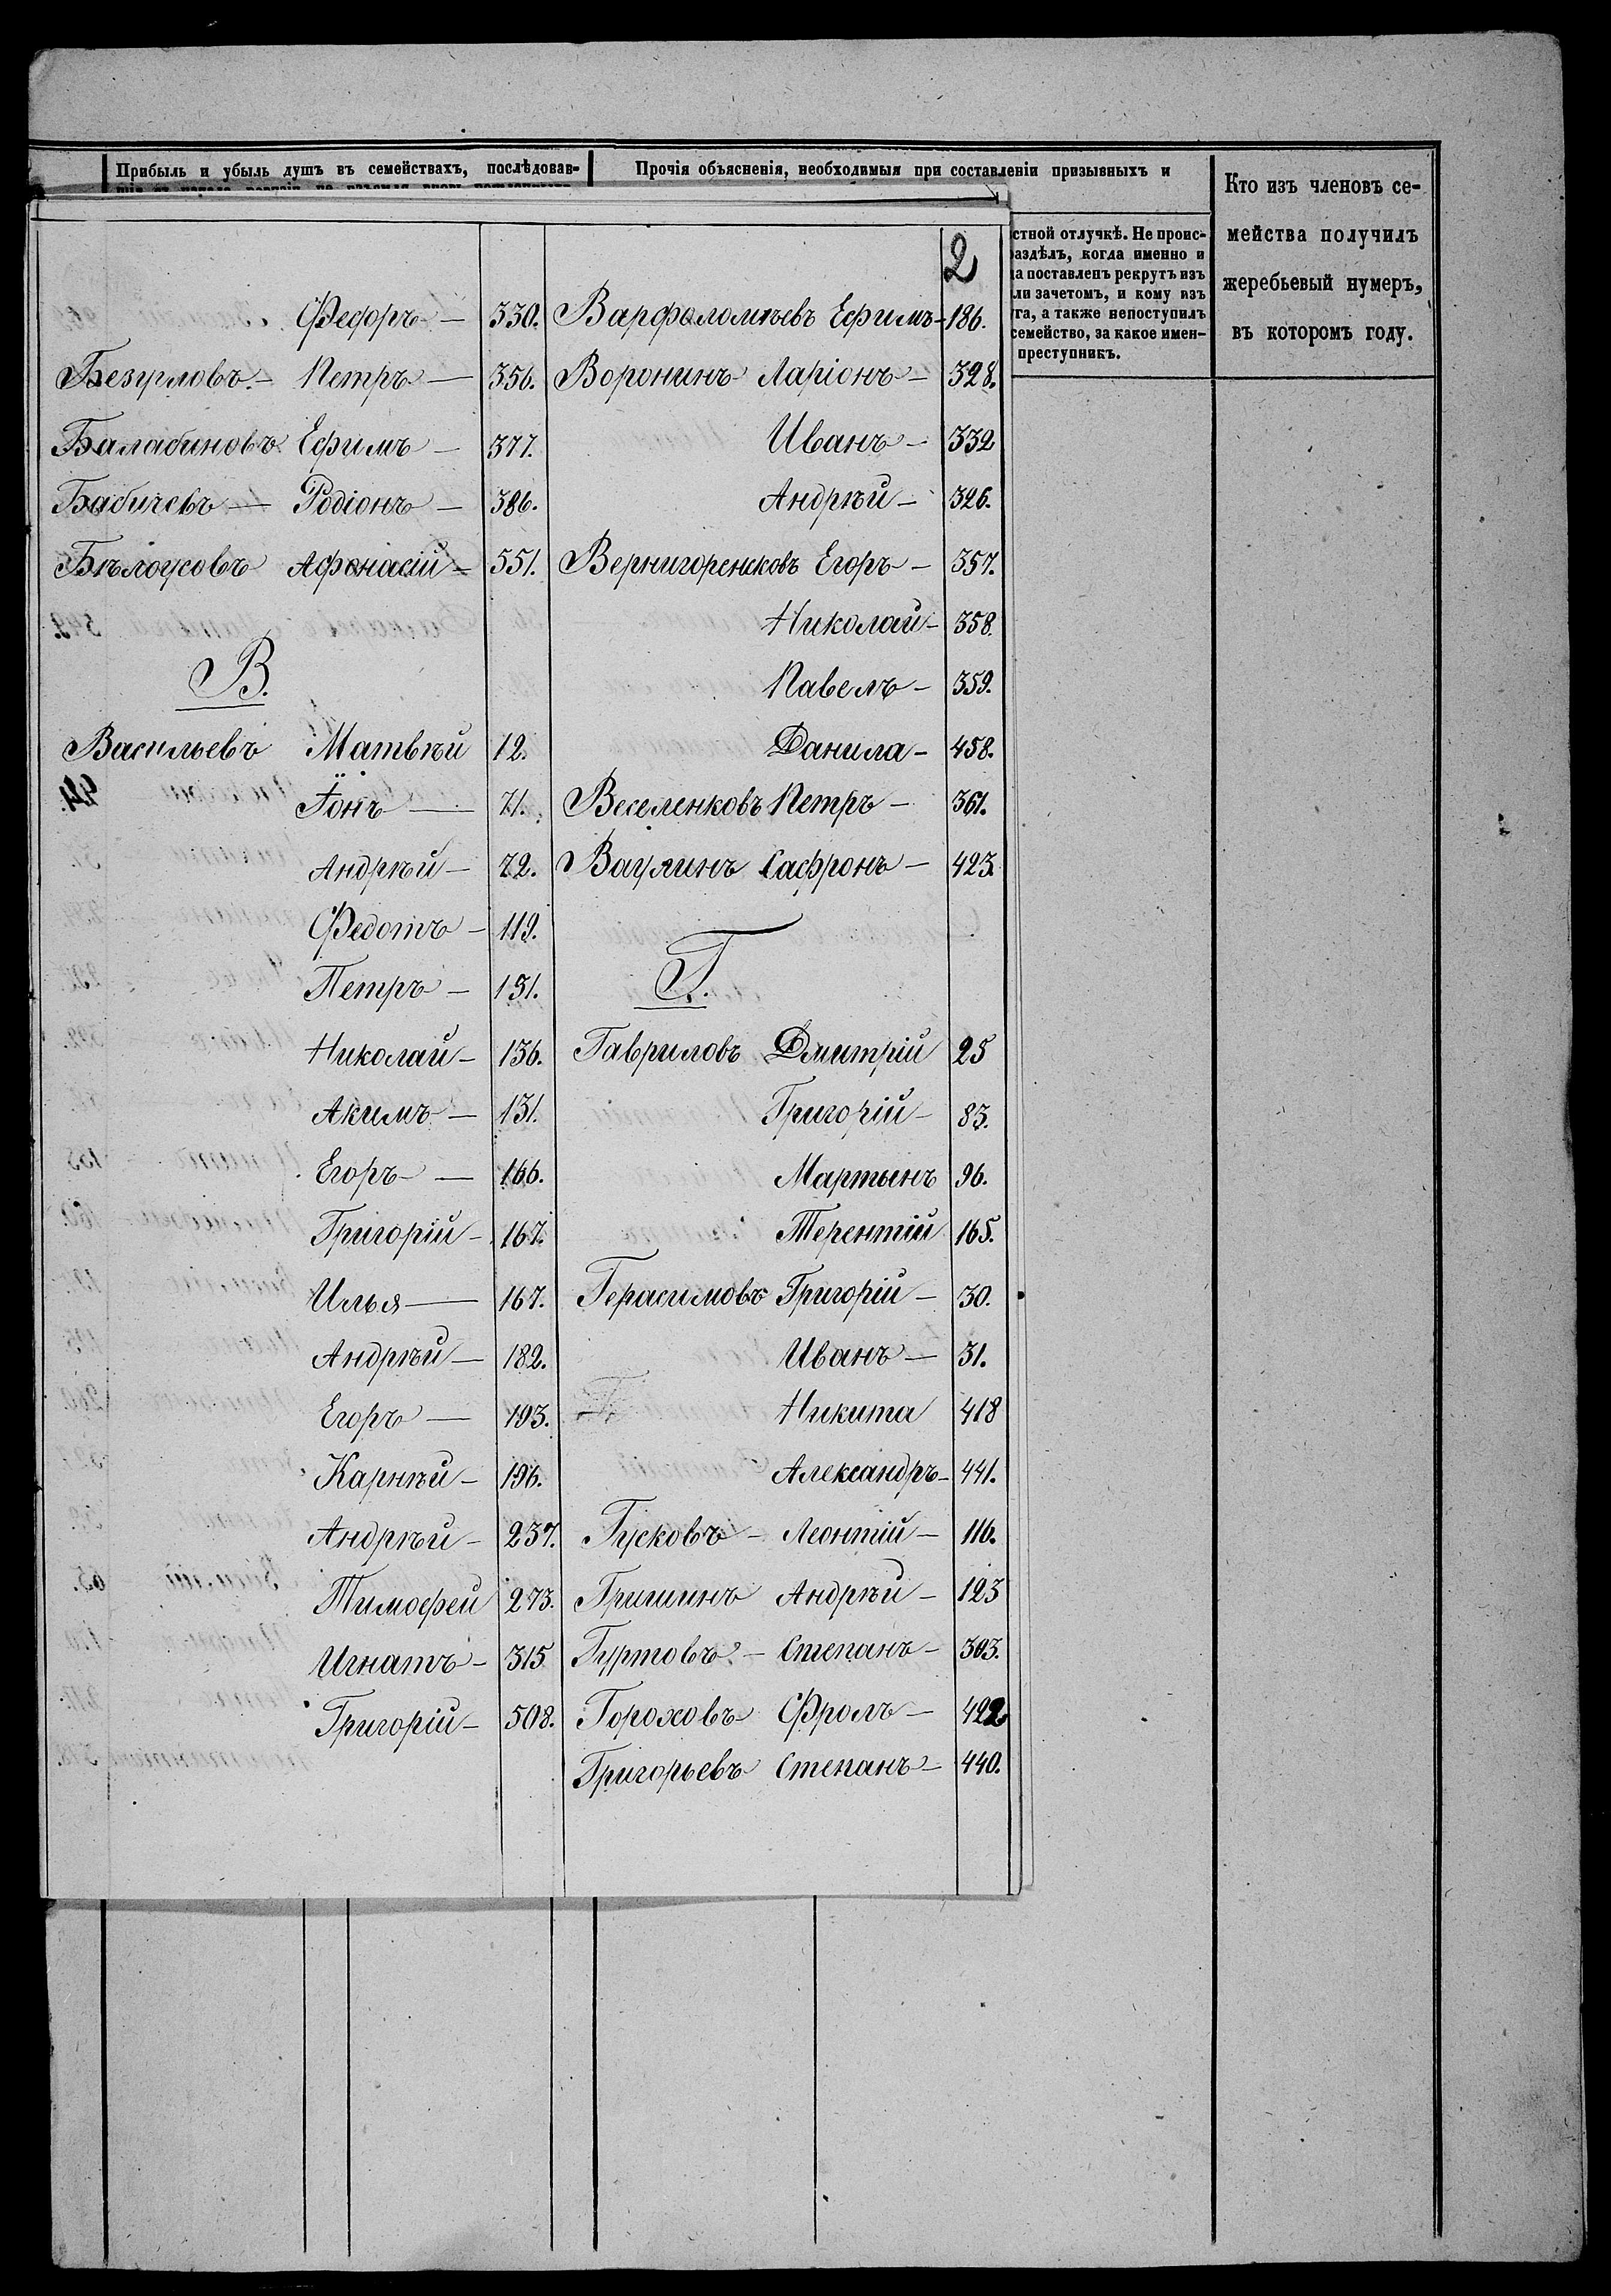 Прибыль и убыль душъ въ семействахъ, послѣдовав-
Прочія объясненія, необходимыя при составленіи призывныхъ и
Кто изъ членовъ се-
мейства получилъ
жеребьевый нумеръ,
въ которомъ году.
стной отлучкѣ. Не проис-
аздѣлъ, когда именно и
а поставленъ рекрутъ изъ
ли зачетомъ, и кому изъ
та, а также непоступилъ
семейство, за какое имен-
преступникъ.
2
Федоръ — 330.
Безуловъ — Петръ — 356.
Балабиновъ Ефимъ — 377.
Бабичевъ — Родіонъ — 386.
Бѣлоусовъ Афонасій — 551.
В.
Васильевъ Матвѣй 12.
Іонъ — 71.
Андрѣй — 72.
Федотъ — 119.
Петръ — 131.
Николай — 136.
Акимъ — 131.
Егоръ — 166.
Григорій — 167.
Илья — 167.
Андрѣй — 182.
Егоръ — 193.
Карнѣй — 196.
Андрѣй — 237.
Тимофей 273.
Игнатъ — 315
Григорій — 508.
Варфоломѣевъ Ефимъ — 186.
Воронинъ Ларіонъ — 328.
Иванъ — 332
Андрѣй — 326.
Вернигоренковъ Егоръ — 357.
Николай — 358.
Павелъ — 359.
Данила — 458.
Веселенковъ Петръ — 361.
Ваулинъ Сафронъ — 423.
Г.
Гавриловъ Дмитрій 25
Григорій — 83.
Мартынъ 96.
Терентій 165.
Герасимовъ Григорій — 30.
Иванъ — 31.
Никита 418
Александръ — 441.
Гусковъ — Леонтій — 116.
Гришинъ Андрѣй — 123
Гуртовъ — Степанъ — 303.
Гороховъ Фролъ — 422
Григорьевъ Степанъ — 440.